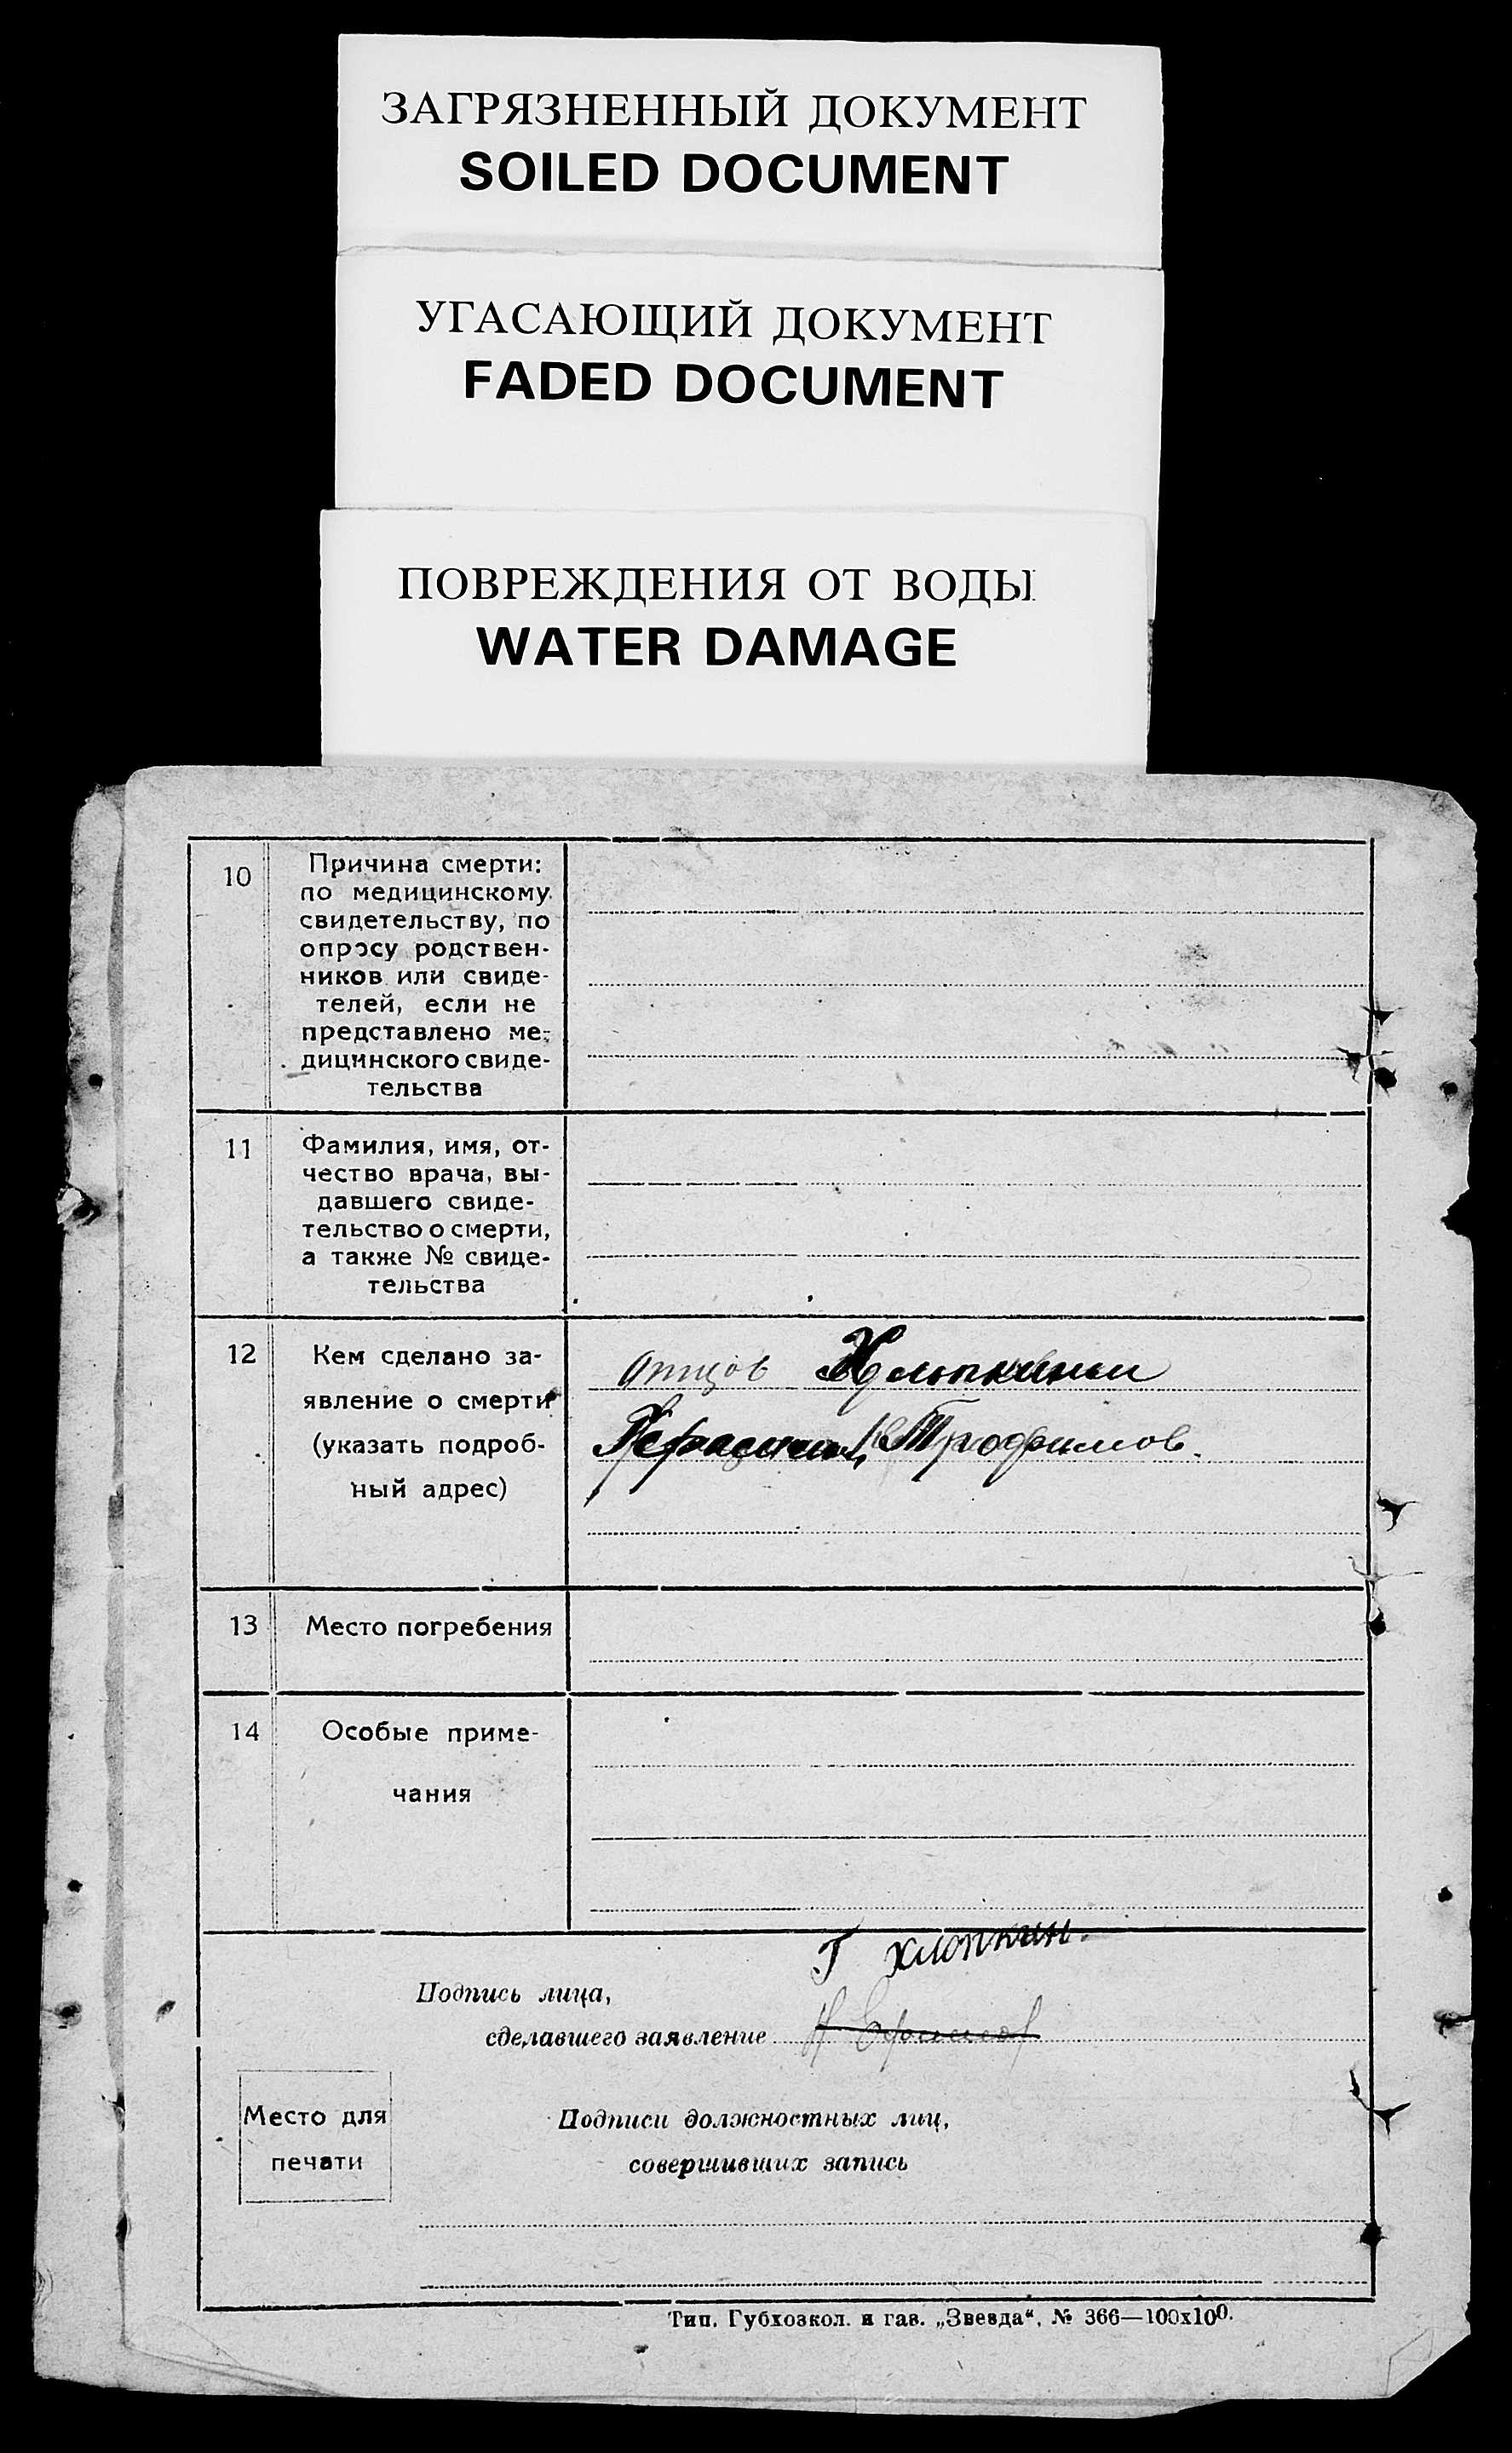 ЗАГРЯЗНЕННЫЙ ДОКУМЕНТ
SOILED DOCUMENT
УГАСАЮЩИЙ ДОКУМЕНТ
FADED DOCUMENT
ПОВРЕЖДЕНИЯ ОТ ВОДЫ
WATER DAMAGE
10 Причина смерти:
по медицинскому
свидетельству, по
опросу родствен-
ников или свиде-
телей, если не
представлено ме-
дицинского свиде-
тельства
11 Фамилия, имя, от-
чество врача, вы-
давшего свиде-
тельство о смерти,
а также № свиде-
тельства
12 Кем сделано за-
явление о смерти
(указать подроб-
ный адрес)
отцов Хлопкиным
Трофимов.
13 Место погребения
14 Особые приме-
чания
Г Хлопкин.
Подпись лица,
сделавшего заявление
Место для
печати
Подписи должностных лиц,
совершивших запись
Тип. Губхозкол. и газ. „Звезда“, № 366—100х100.